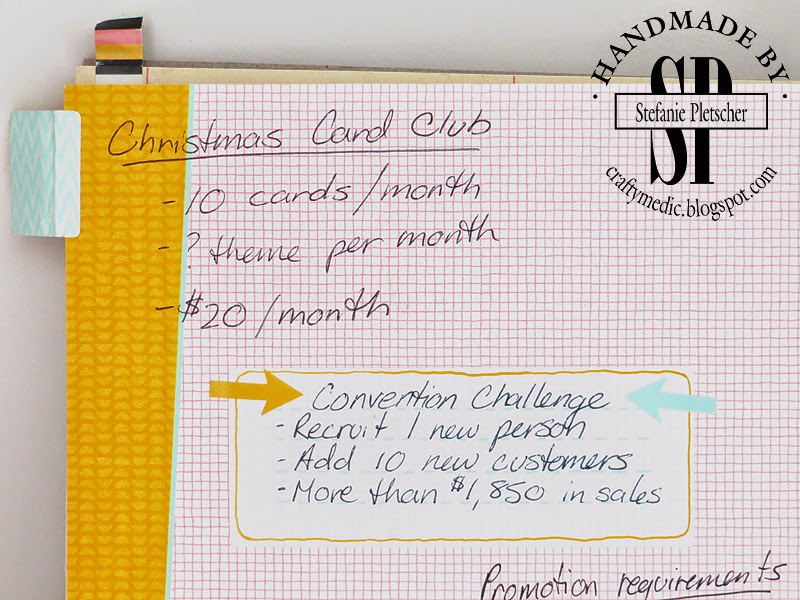 HANDMADE BY
SP
Stefanie Pletscher
craftymedic.blogspot.com
Christmas Card Club
- 10 cards/month
- ? theme per month
- $20/month
Convention Challenge
- Recruit 1 new person
- Add 10 new customers
- More than $1,850 in sales
Promotion requirements